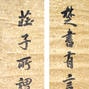 楚書有言
莊子所謂